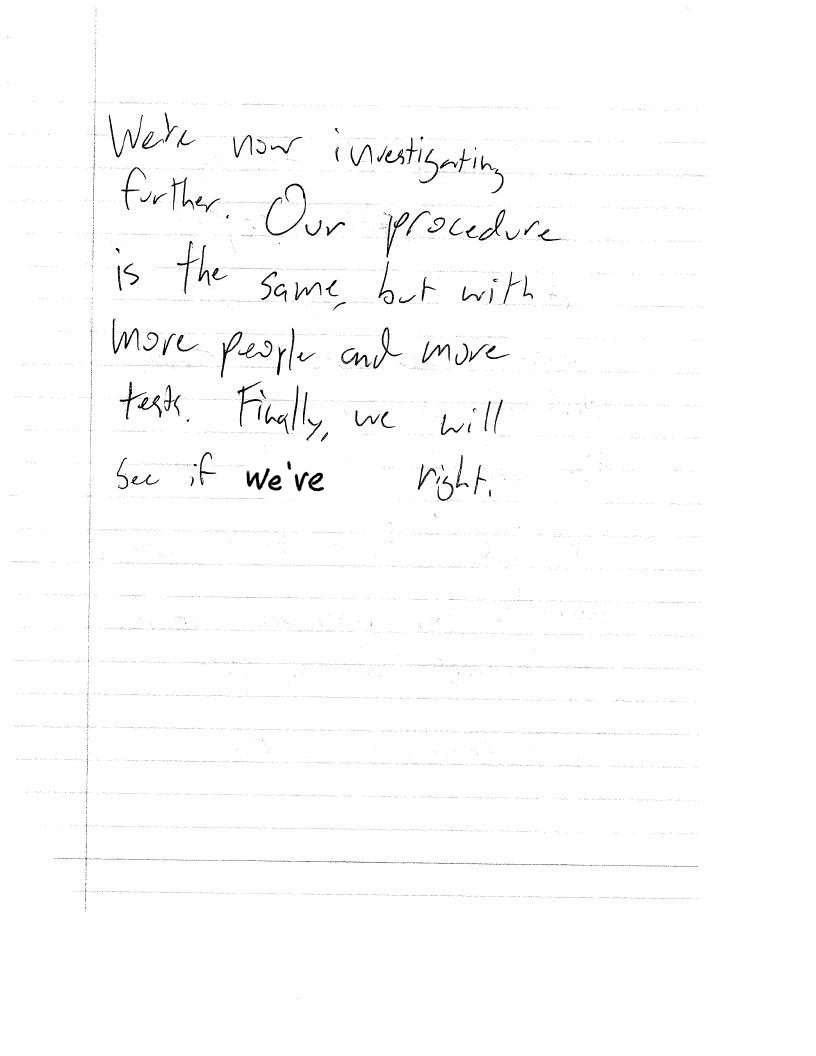 We're now investigating
further. Our procedure
is the same, but with
more people and more
tests. Finally, we will
see if we've right.